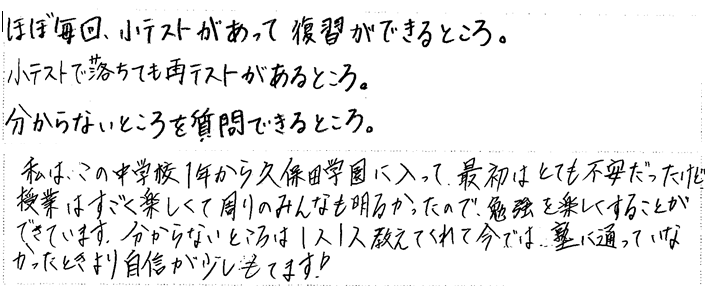 ほぼ毎回、小テストがあって復習ができるところ。
小テストで落ちても再テストがあるところ。
分からないところを質問できるところ。
私は、この中学校1年から久保田学園に入って、最初はとても不安だったけど
授業はすごく楽しくて周りのみんなも明るかったので、勉強を楽しくすることが
できています。分からないところは1人1人教えてくれて今では、塾に通っていな
かったときより自信が少しもてます!